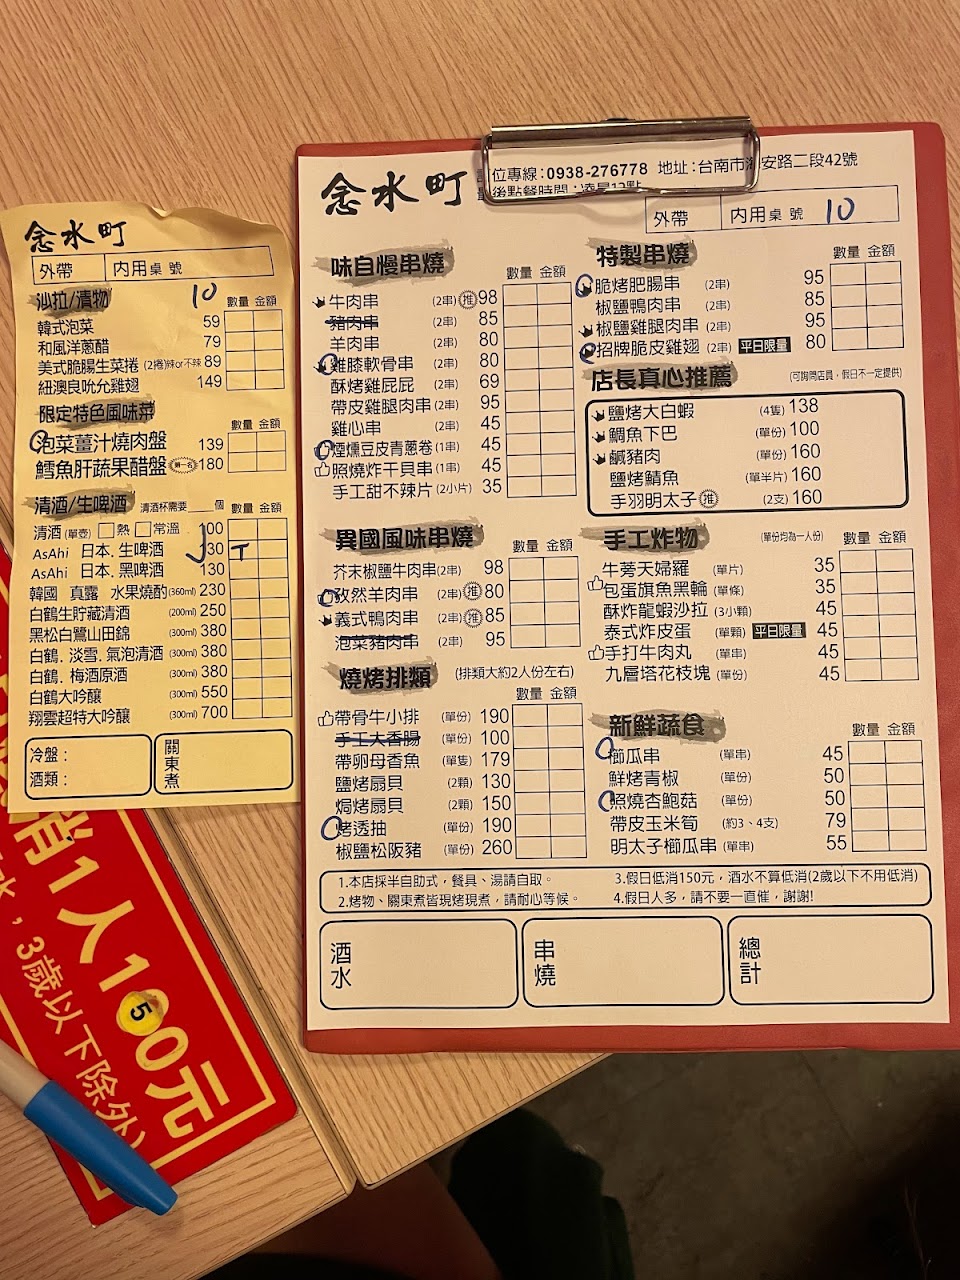 念水町
外帶 內用桌號 10
沙拉/漬物 數量 金額
韓式泡菜 59
和風洋蔥醋 79
美式脆腸生菜捲 (2捲)辣or不辣 89
紐澳良吮允雞翅 149
限定特色風味菜 數量 金額
泡菜薑汁燒肉盤 139
鱈魚肝蔬果醋盤 第一名 180
清酒/生啤酒 清酒杯需要 個 數量 金額
清酒(單壺) 熱 常溫 100
AsAhi 日本.生啤酒 130
AsAhi 日本.黑啤酒 130
韓國 真露 水果燒酌(360ml) 230
白鶴生貯藏清酒 (200ml) 250
黑松白鷺山田錦 (300ml) 380
白鶴.淡雪.氣泡清酒 (300ml) 380
白鶴.梅酒原酒 (300ml) 380
白鶴大吟釀 (300ml) 550
翔雲超特大吟釀 (300ml) 700
冷盤：
酒類：
關東煮
消1人100元
5
，3歲以下除外)
念水町
位專線：0938-276778 地址：台南市海安路二段42號
後點餐時間：凌晨12點
外帶 內用桌號 10
味自慢串燒 數量 金額
牛肉串 (2串) 推 98
豬肉串 (2串) 85
羊肉串 (2串) 80
雞膝軟骨串 (2串) 80
酥烤雞屁屁 (2串) 69
帶皮雞腿肉串 (2串) 95
雞心串 (2串) 45
煙燻豆皮青蔥卷 (1串) 45
照燒炸干貝串 (1串) 45
手工甜不辣片 (2小片) 35
異國風味串燒 數量 金額
芥末椒鹽牛肉串 (2串) 98
孜然羊肉串 (2串) 推 80
義式鴨肉串 (2串) 推 85
泡菜豬肉串 (2串) 95
燒烤排類 (排類大約2人份左右)
數量 金額
帶骨牛小排 (單份) 190
手工大香腸 (單份) 100
帶卵母香魚 (單隻) 179
鹽烤扇貝 (2顆) 130
焗烤扇貝 (2顆) 150
烤透抽 (單份) 190
椒鹽松阪豬 (單份) 260
特製串燒 數量 金額
脆烤肥腸串 (2串) 95
椒鹽鴨肉串 (2串) 85
椒鹽雞腿肉串 (2串) 95
招牌脆皮雞翅 (2串) 平日限量 80
店長真心推薦 (可詢問店員，假日不一定提供)
鹽烤大白蝦 (4隻) 138
鯛魚下巴 (單份) 100
鹹豬肉 (單份) 160
鹽烤鯖魚 (單半片) 160
手羽明太子 推 (2支) 160
手工炸物 (單份均為一人份) 數量 金額
牛蒡天婦羅 (單片) 35
包蛋旗魚黑輪 (單條) 35
酥炸龍蝦沙拉 (3小顆) 45
泰式炸皮蛋 (單顆) 平日限量 45
手打牛肉丸 (單串) 45
九層塔花枝塊 (單份) 45
新鮮蔬食 數量 金額
櫛瓜串 (單串) 45
鮮烤青椒 (單份) 50
照燒杏鮑菇 (單份) 50
帶皮玉米筍 (約3、4支) 79
明太子櫛瓜串 (單串) 55
1.本店採半自助式，餐具、湯請自取。
2.烤物、關東煮皆現烤現煮，請耐心等候。
3.假日低消150元，酒水不算低消(2歲以下不用低消)
4.假日人多，請不要一直催，謝謝!
酒水
串燒
總計